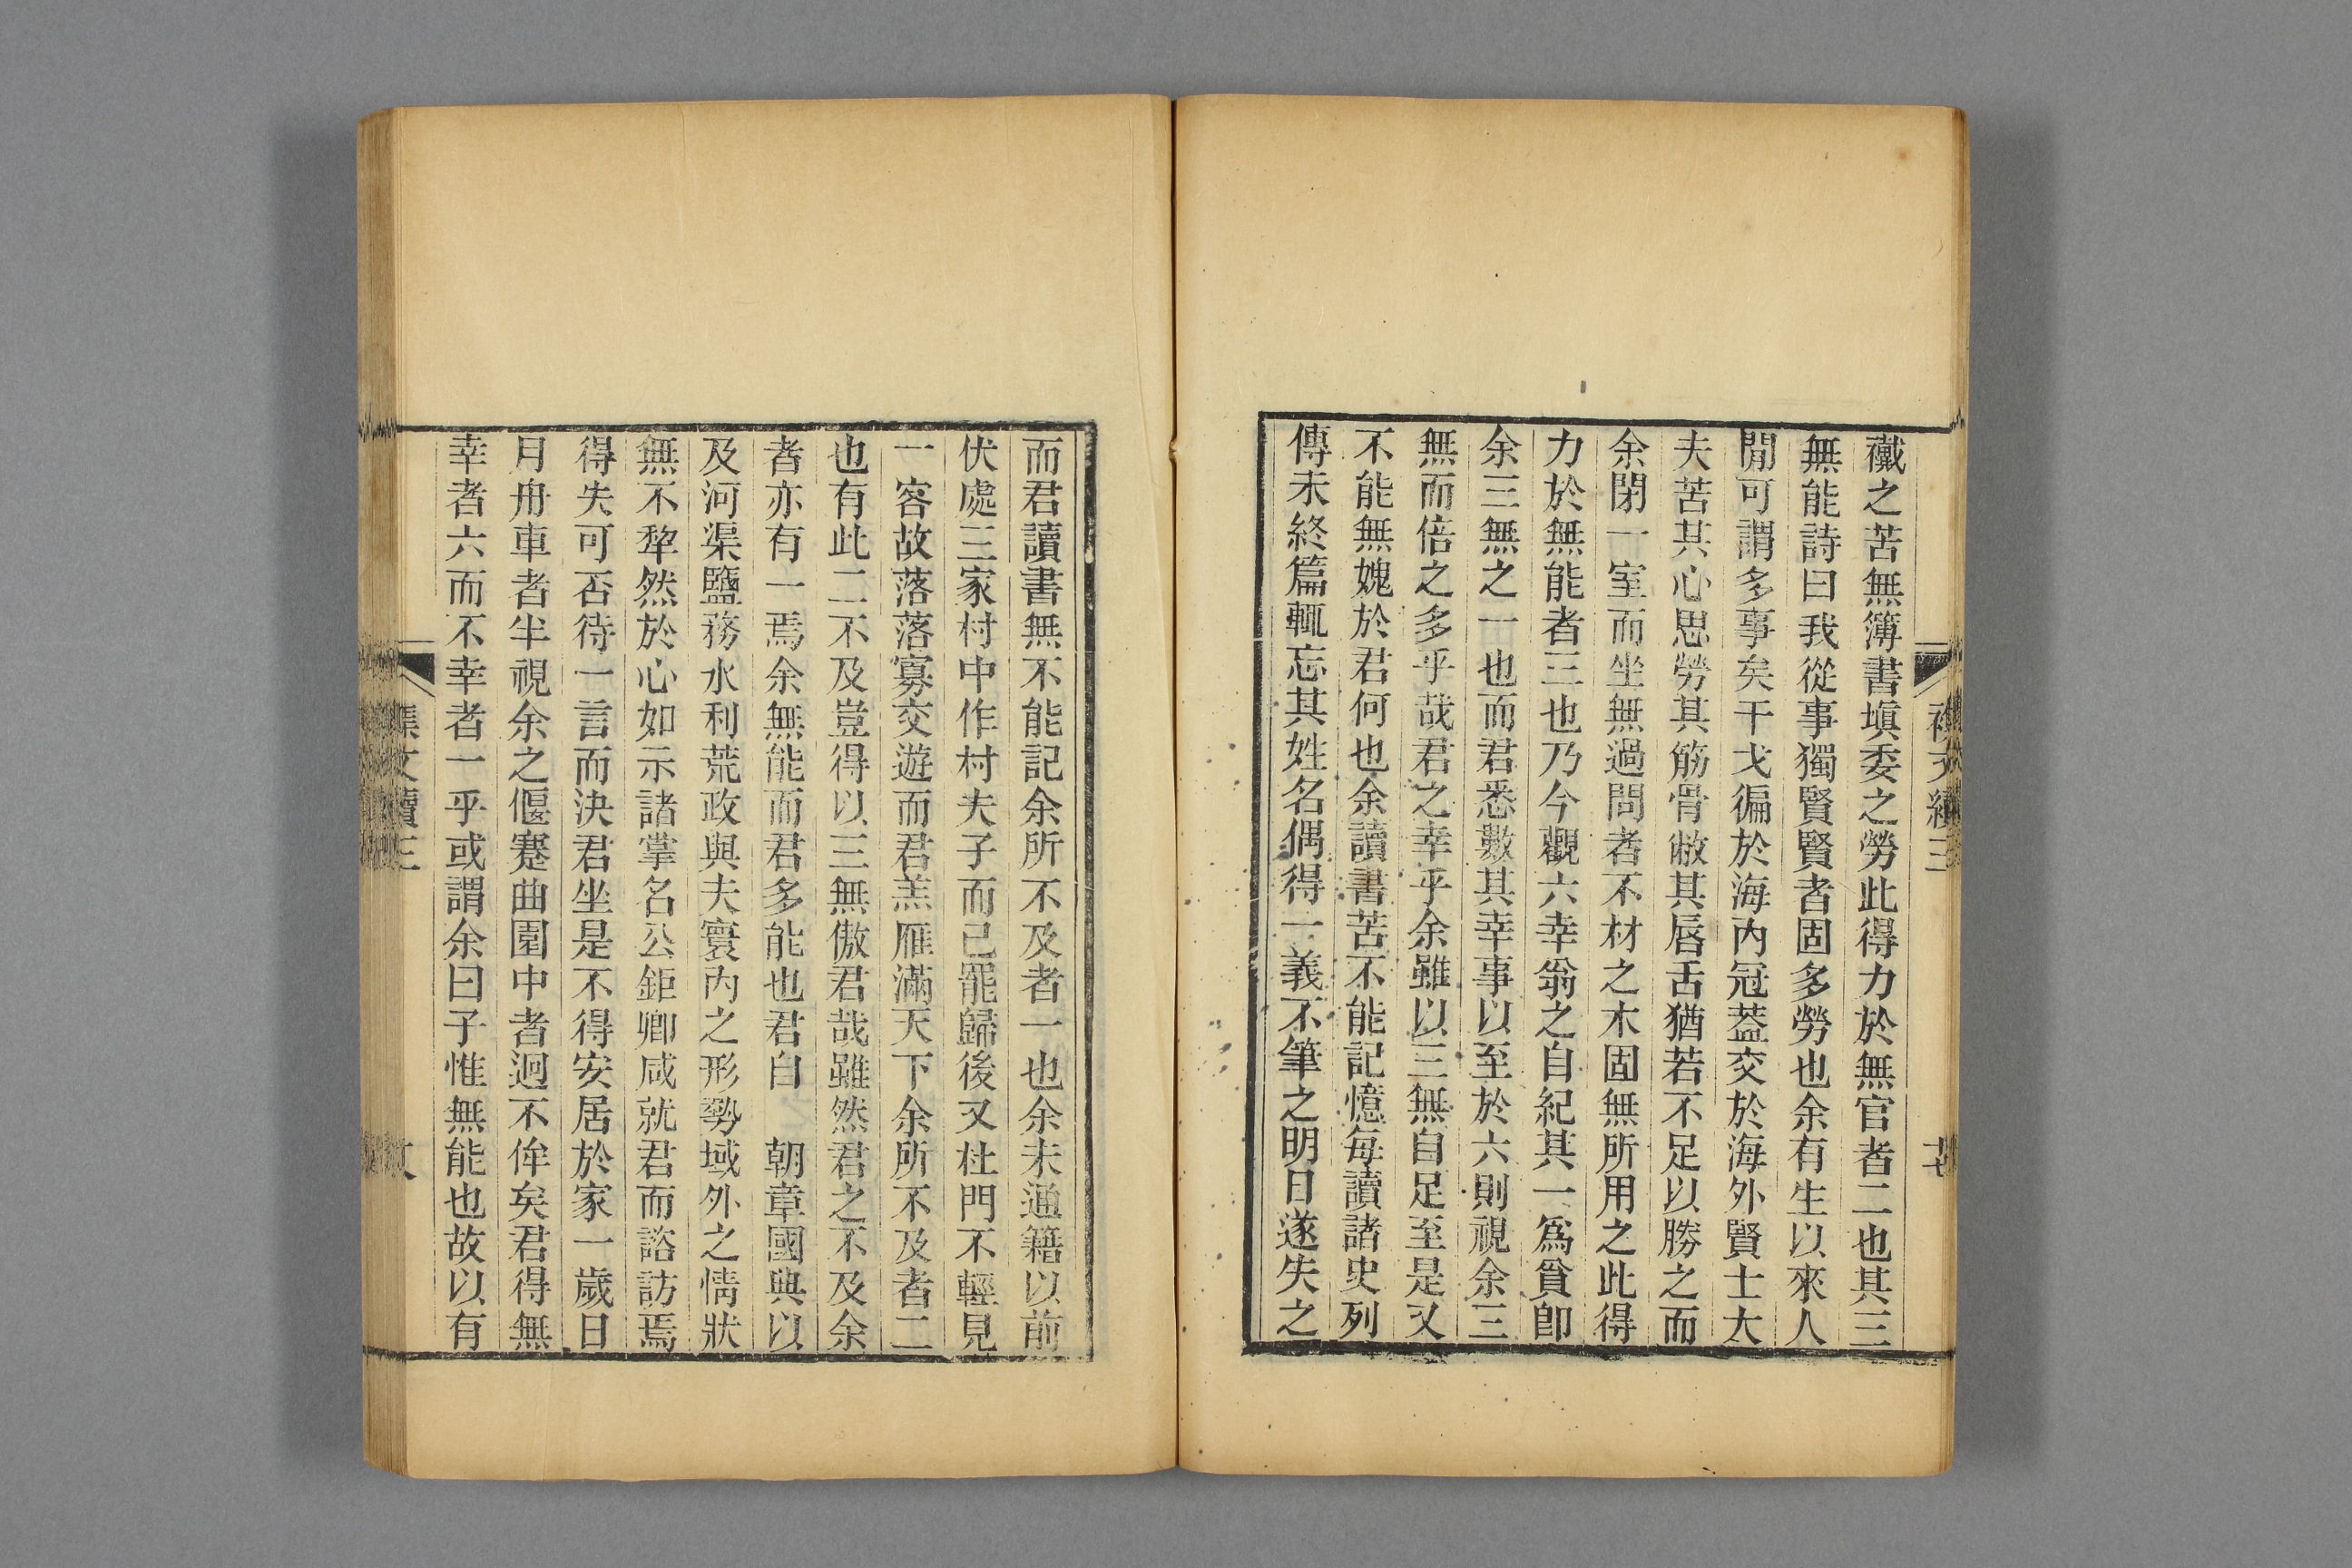 襶之苦無簿書塡委之勞此得力於無官者二也其三
無能詩曰我從事獨賢賢者固多勞也余有生以來人
閒可謂多事矣干戈徧於海內冠葢交於海外賢士大
夫苦其心思勞其筋骨敝其唇舌猶若不足以勝之而
余閉一室而坐無過問者不材之木固無所用之此得
力於無能者三也乃今觀六幸翁之自紀其一爲貧卽
余三無之一也而君悉數其幸事以至於六則視余三
無而倍之多乎哉君之幸乎余雖以三無自足至是又
不能無媿於君何也余讀書苦不能記憶每讀諸史列
傳未終篇輒忘其姓名偶得一義不筆之明日遂失之
而君讀書無不能記余所不及者一也余未通籍以前
伏處三家村中作村夫子而已罷歸後又杜門不輕見
一客故落落寡交遊而君羔雁滿天下余所不及者二
也有此二不及豈得以三無傲君哉雖然君之不及余
者亦有一焉余無能而君多能也君自　朝章國典以
及河渠鹽務水利荒政與夫寰內之形勢域外之情狀
無不犂然於心如示諸掌名公鉅卿咸就君而諮訪焉
得失可否待一言而決君坐是不得安居於家一歲日
月舟車者半視余之偃蹇曲園中者迥不侔矣君得無
幸者六而不幸者一乎或謂余曰子惟無能也故以有